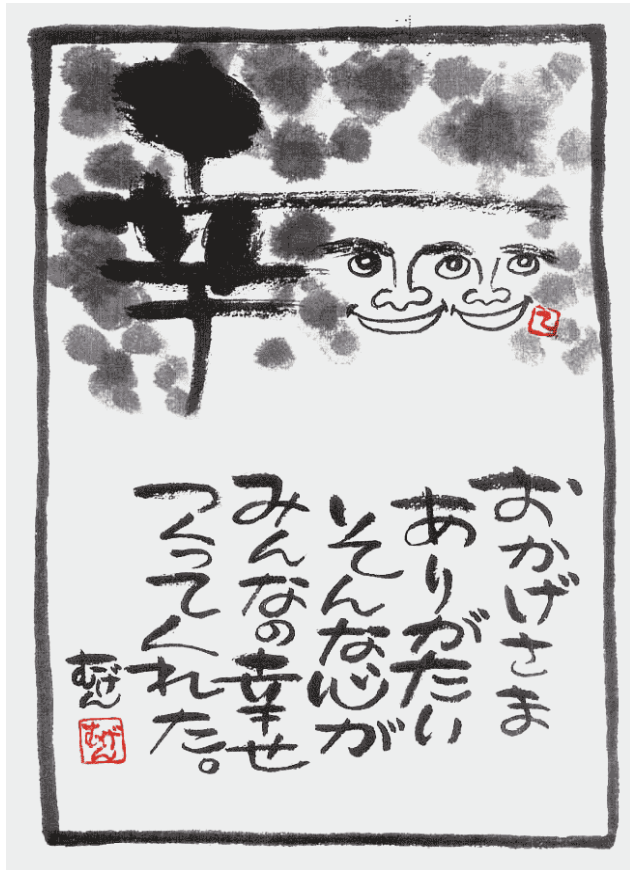 幸
おかげさま
ありがたい
そんな心が
みんなの幸せ
つくってくれた。
むげん
むげん